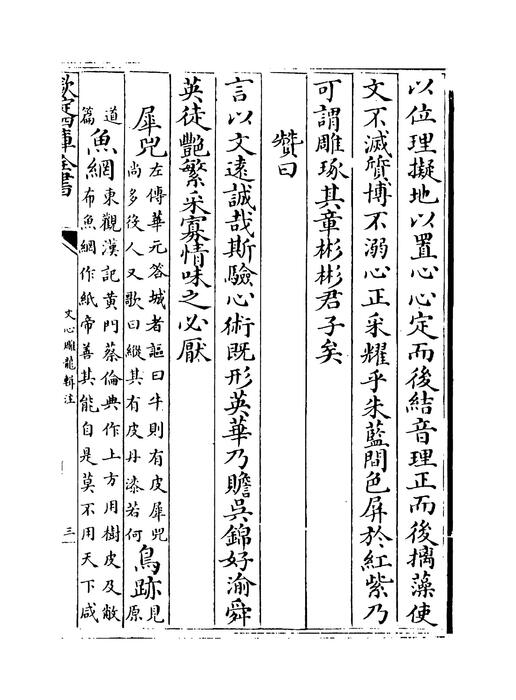 以位理擬地以置心心定而後結音理正而後摛藻使
文不滅質博不溺心正采耀乎朱藍間色屏於紅紫乃
可謂雕琢其章彬彬君子矣
贊曰
言以文遠誠哉斯驗心術既形英華乃贍吳錦好渝舜
英徒艷繁采寡情味之必厭
犀兕
左傳華元答城者謳曰牛則有皮犀兕
尚多役人又歌曰縱其有皮丹漆若何
鳥跡
見
原
道
篇
魚網
東觀漢記黄門蔡倫典作上方用樹皮及敝
布魚網作紙帝善其能自是莫不用天下咸
欽定四庫全書
文心雕龍輯注
三